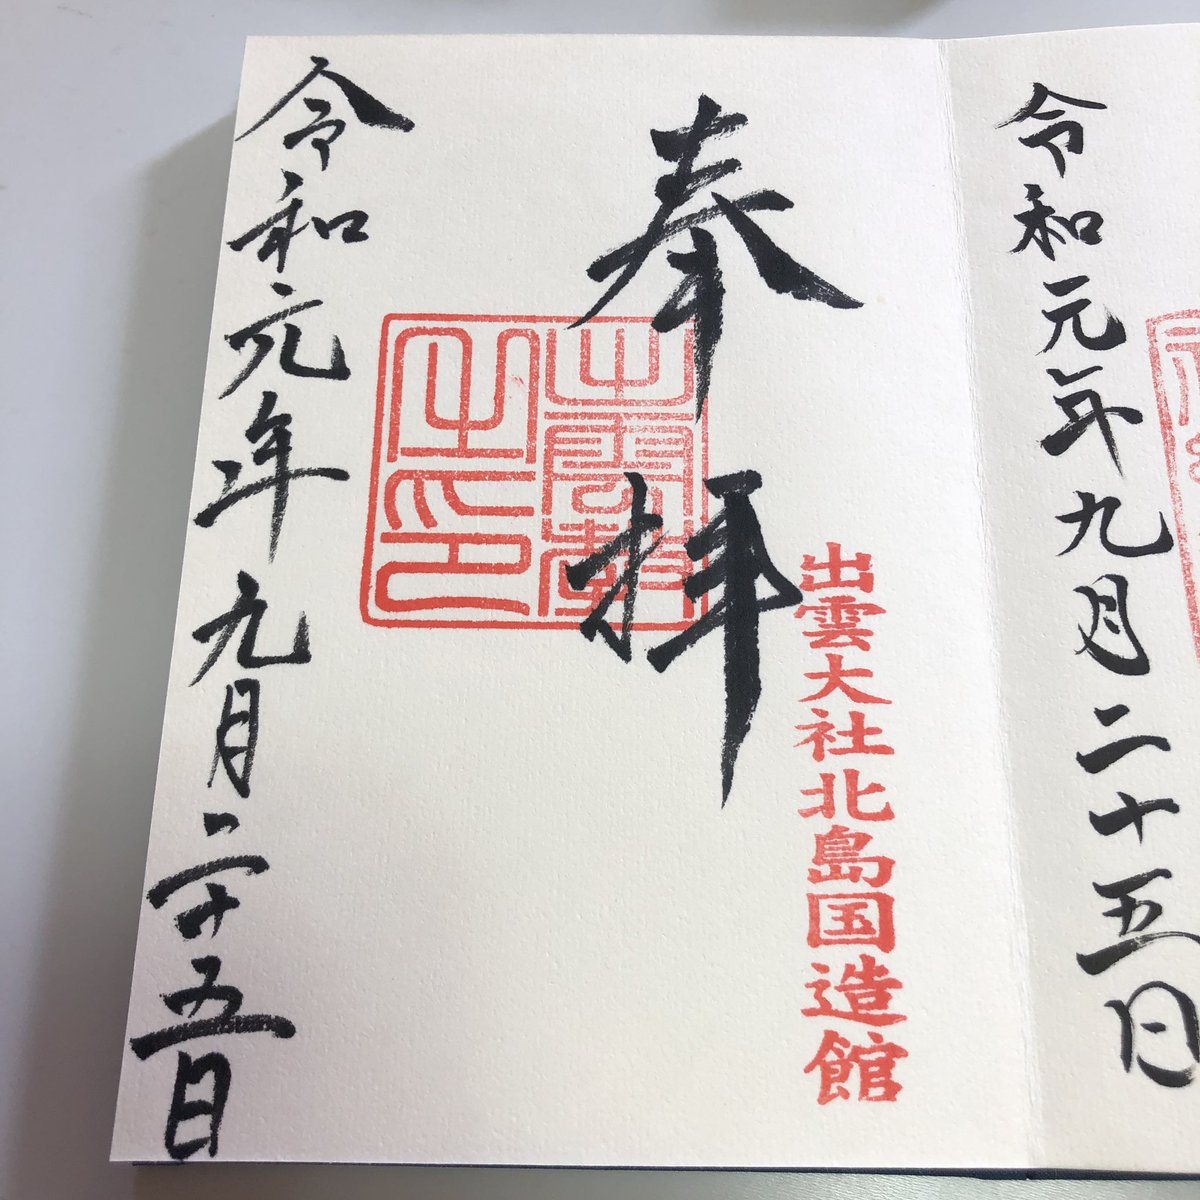 令和元年九月二十五日
出雲大社北島国造館
奉拝
出雲教
之印
令和元年九月二十五日